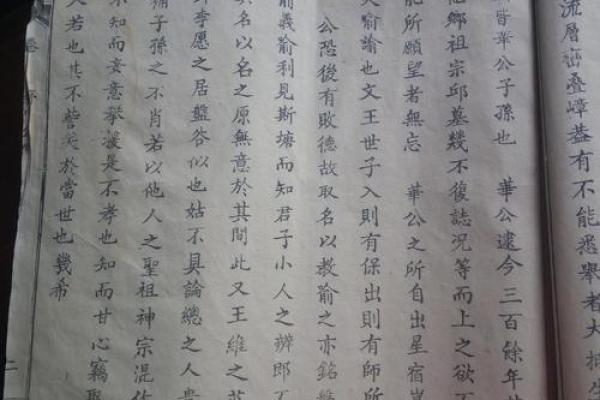 流層巒叠嶂蓋有不能悉舉者大抵生
皆華公子孫也 華公逮今三百餘年
鄉祖宗邱墓幾不復誌況等而上之欲
能所願望者無忘 華公之所自出星宿
喻諭也文王世子入則有保出則有師所
公恐後有敗德故取名以教諭之亦銘盤
義喻利見斯塘而知君子小人之辨郎
其名以名之原無意於其間此又王維之
李愿之居盤谷似也姑不具論總之人貴
補子孫之不肖若以他人之聖祖神宗混作
不知而妄意攀援是不孝也知而甘心竊
若也其不訾笑於當世也幾希
二